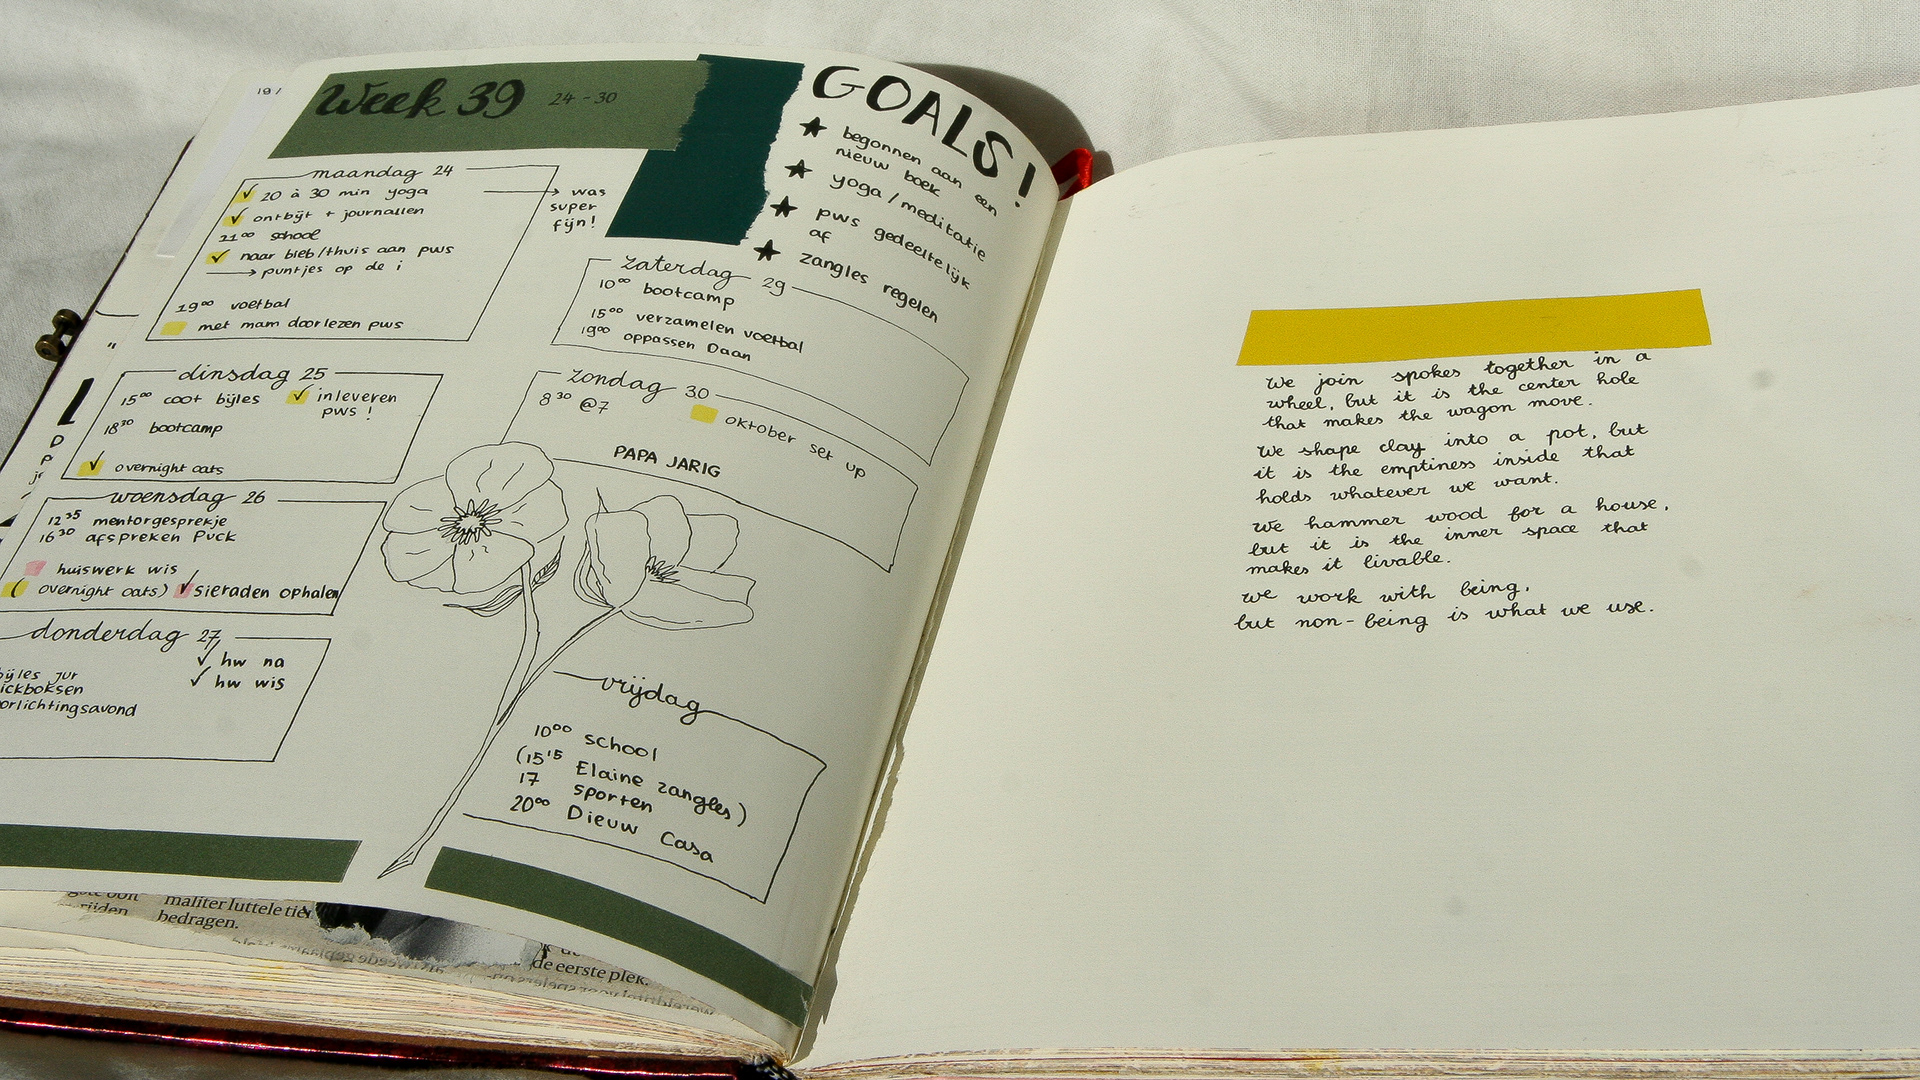 191
Week 39 24-30
maandag 24
20 à 30 min yoga
was
super
fijn!
ontbijt + journallen
school
naar bieb/thuis aan pws
puntjes op de i
19⁰⁰ voetbal
met mam doorlezen pws
dinsdag 25
15⁰⁰ coot bijles
inleveren
pws!
18³⁰ bootcamp
overnight oats
woensdag 26
12³⁵ mentorgesprekje
16³⁰ afspreken Puck
huiswerk wis
(overnight oats) sieraden ophalen
donderdag 27
hw na
hw wis
bijles jur
ickboksen
orlichtingsavond
GOALS!
begonnen aan een
nieuw boek
yoga/meditatie
pws gedeeltelijk
af
zangles regelen
zaterdag 29
10⁰⁰ bootcamp
15⁰⁰ verzamelen voetbal
19⁰⁰ oppassen Daan
zondag 30
8³⁰ @7
oktober set up
PAPA JARIG
vrijdag
10⁰⁰ school
(15¹⁵ Elaine zangles)
17 sporten
20⁰⁰ Dieuw Casa
maliter luttele tien
rijden
bedragen.
de eerste plek.
We join spokes together in a
wheel, but it is the center hole
that makes the wagon move.
We shape clay into a pot, but
it is the emptiness inside that
holds whatever we want.
We hammer wood for a house,
but it is the inner space that
makes it livable.
We work with being,
but non-being is what we use.